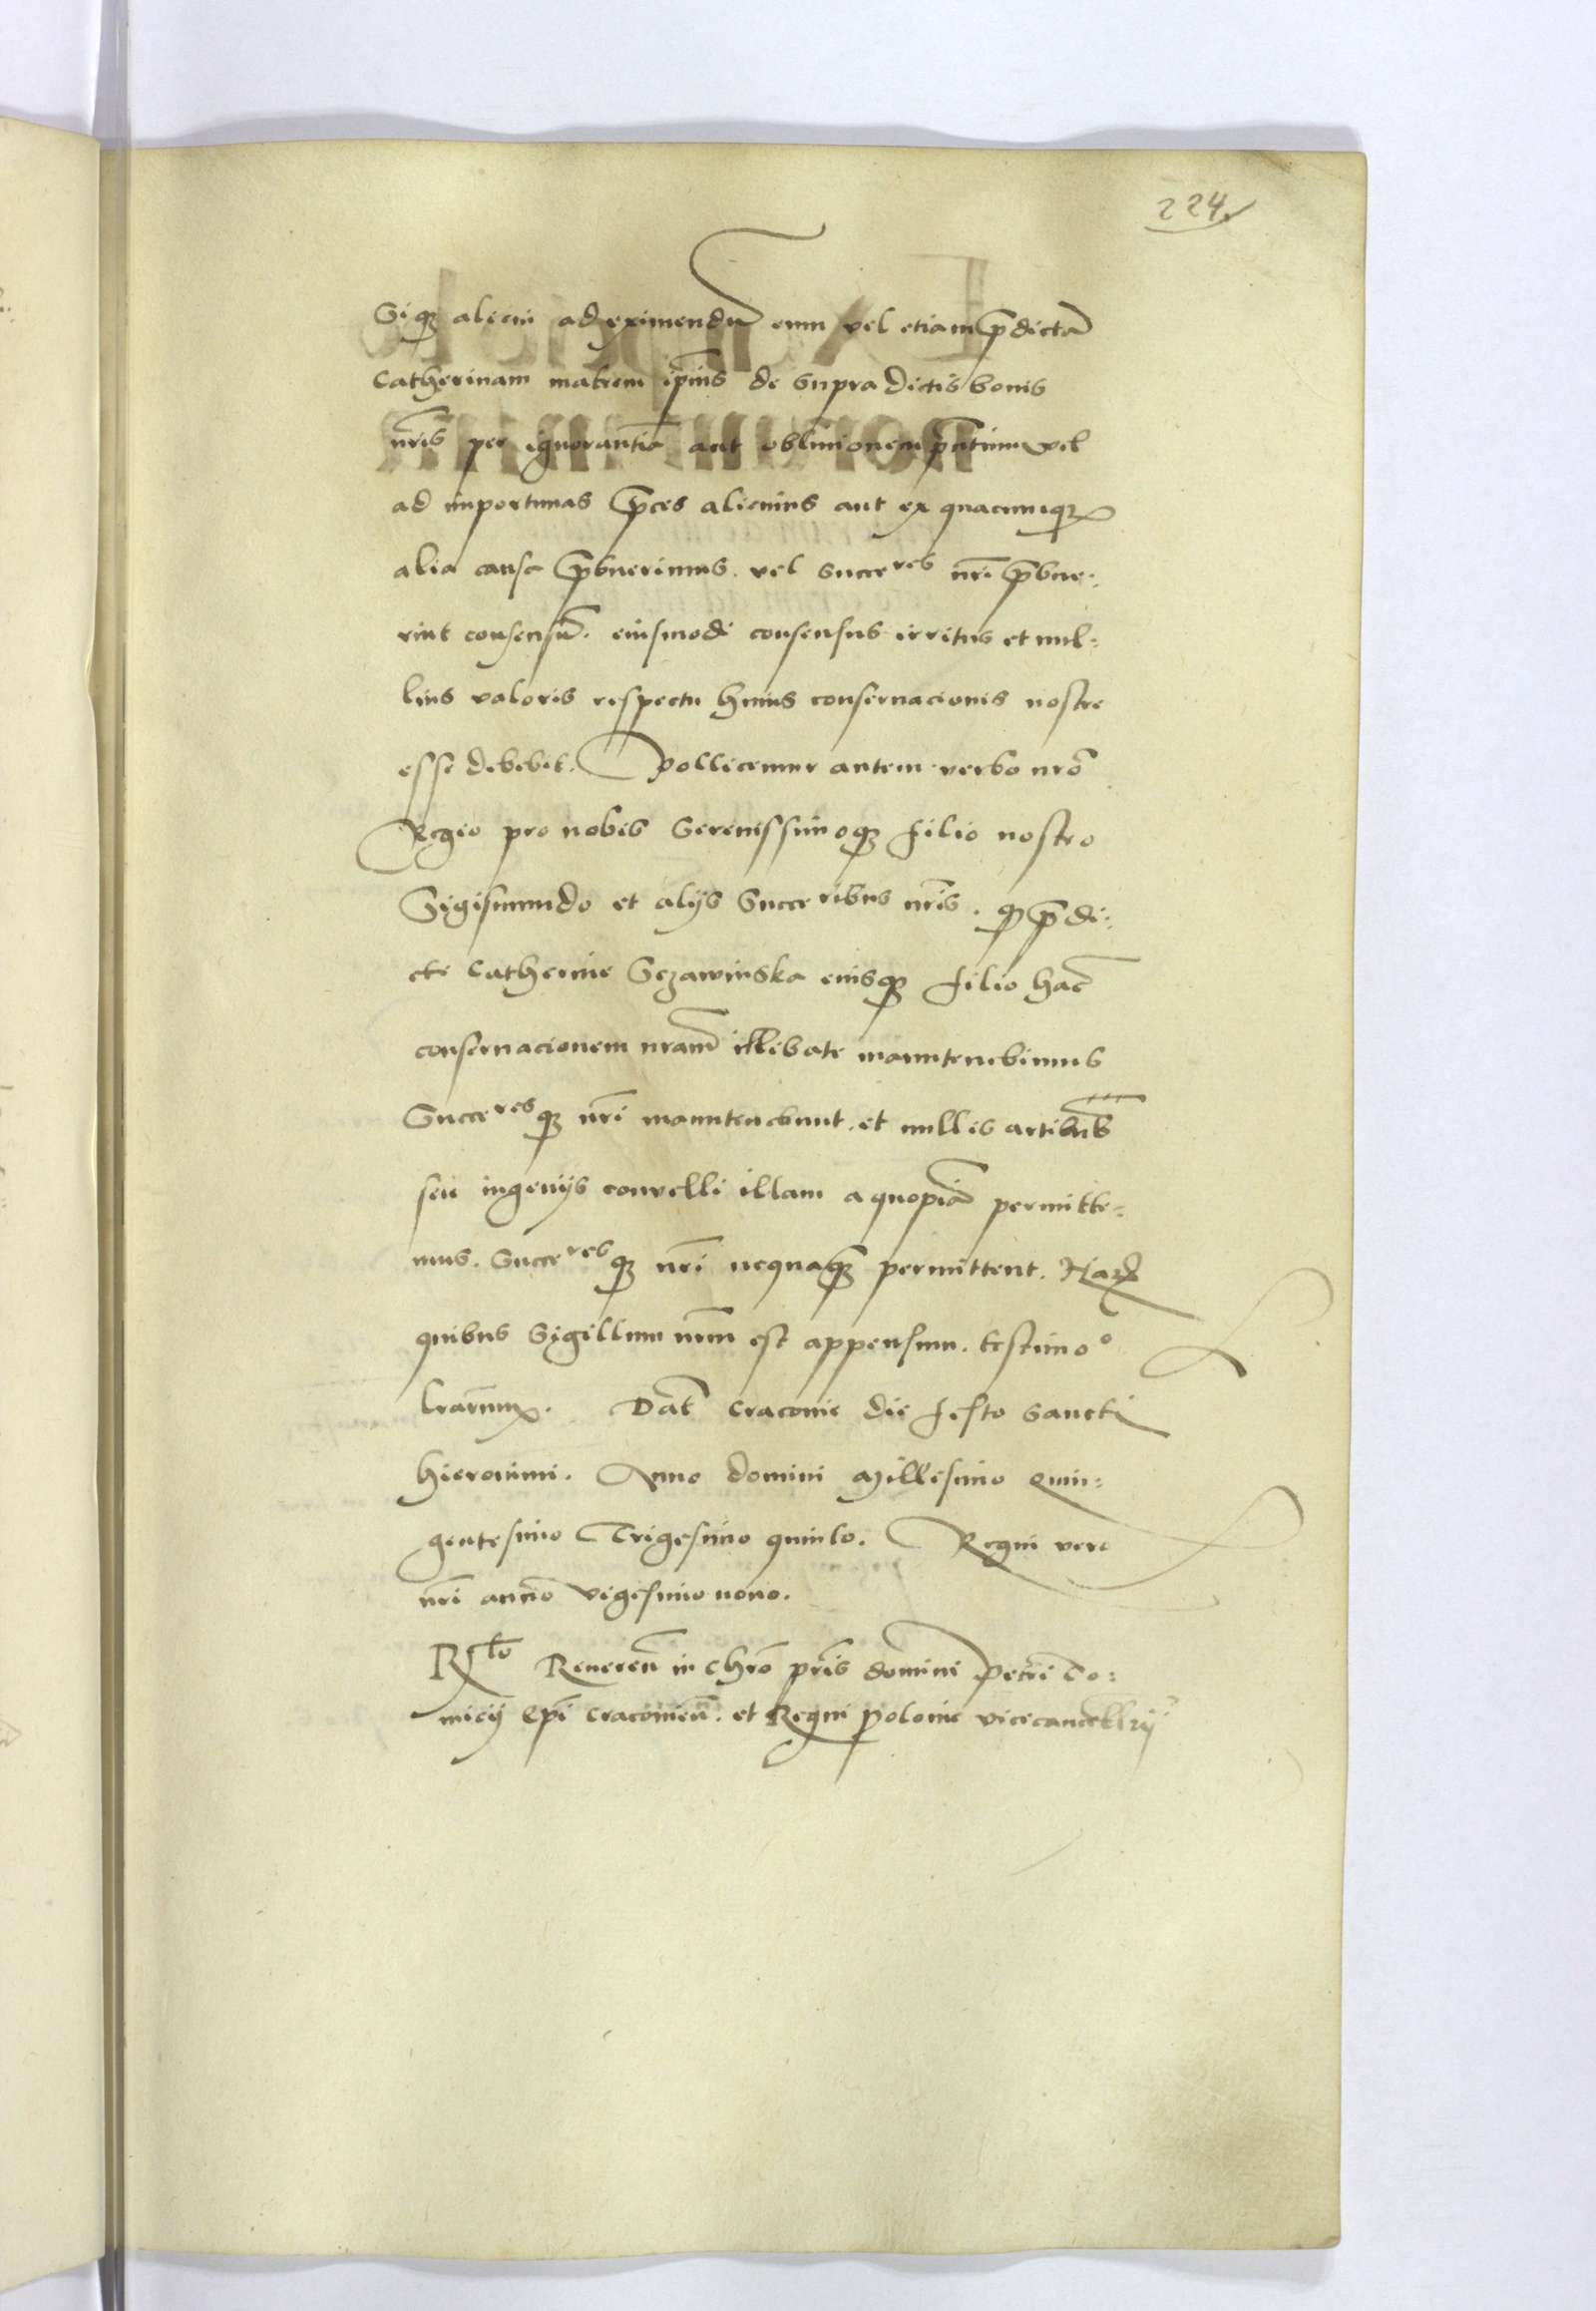 224
Siq₃ alicui ad eximendū eum vel etiam p̄dictā
Catherinam matrem ip̄ius de supradictis bonis
nr̄is per ignorantiā aut obliuionem p̄ntium vel
ad importunas p̄ces alicuius aut ex quacumq₃
alia causa p̄buerimus. vel Succeres nr̄i p̄bue-
rint consensū. eiusmodi consensus irritus et nul-
lius valoris respectu huius conseruacionis nostre
esse debebit. Pollicemur autem verbo nr̄o
Regio pro nobis Serenissimoq₃ filio nostro
Sigismundo et alijs Succeribus nr̄is. q̄ p̄di-
cte Catherine Sczawinska eiusq₃ filio hāc
conseruacionem nram̄ illibate manutenebimus
Succeresq₃ nr̄i manutenebunt. et nullis artibus
seu ingenijs convelli illam a quopiā permitte-
mus. Succeresq₃ nr̄i nequaq̄₃ permittent. Harꝝ
quibus Sigillum nr̄m est appensum. testimoo
lrarum̄. Dat̄ Cracovie die festo Sancti
Hieronimi. Anno domini Millesimo Quin-
gentesimo Trigesimo quinto. Regni vero
nr̄i anno vigesimo nono.
Rlto Reueren̄ in Chr̄o pr̄is domini Petri To-
micij Ep̄i Cracouien̄. et Regni Polonie vicecancellrij